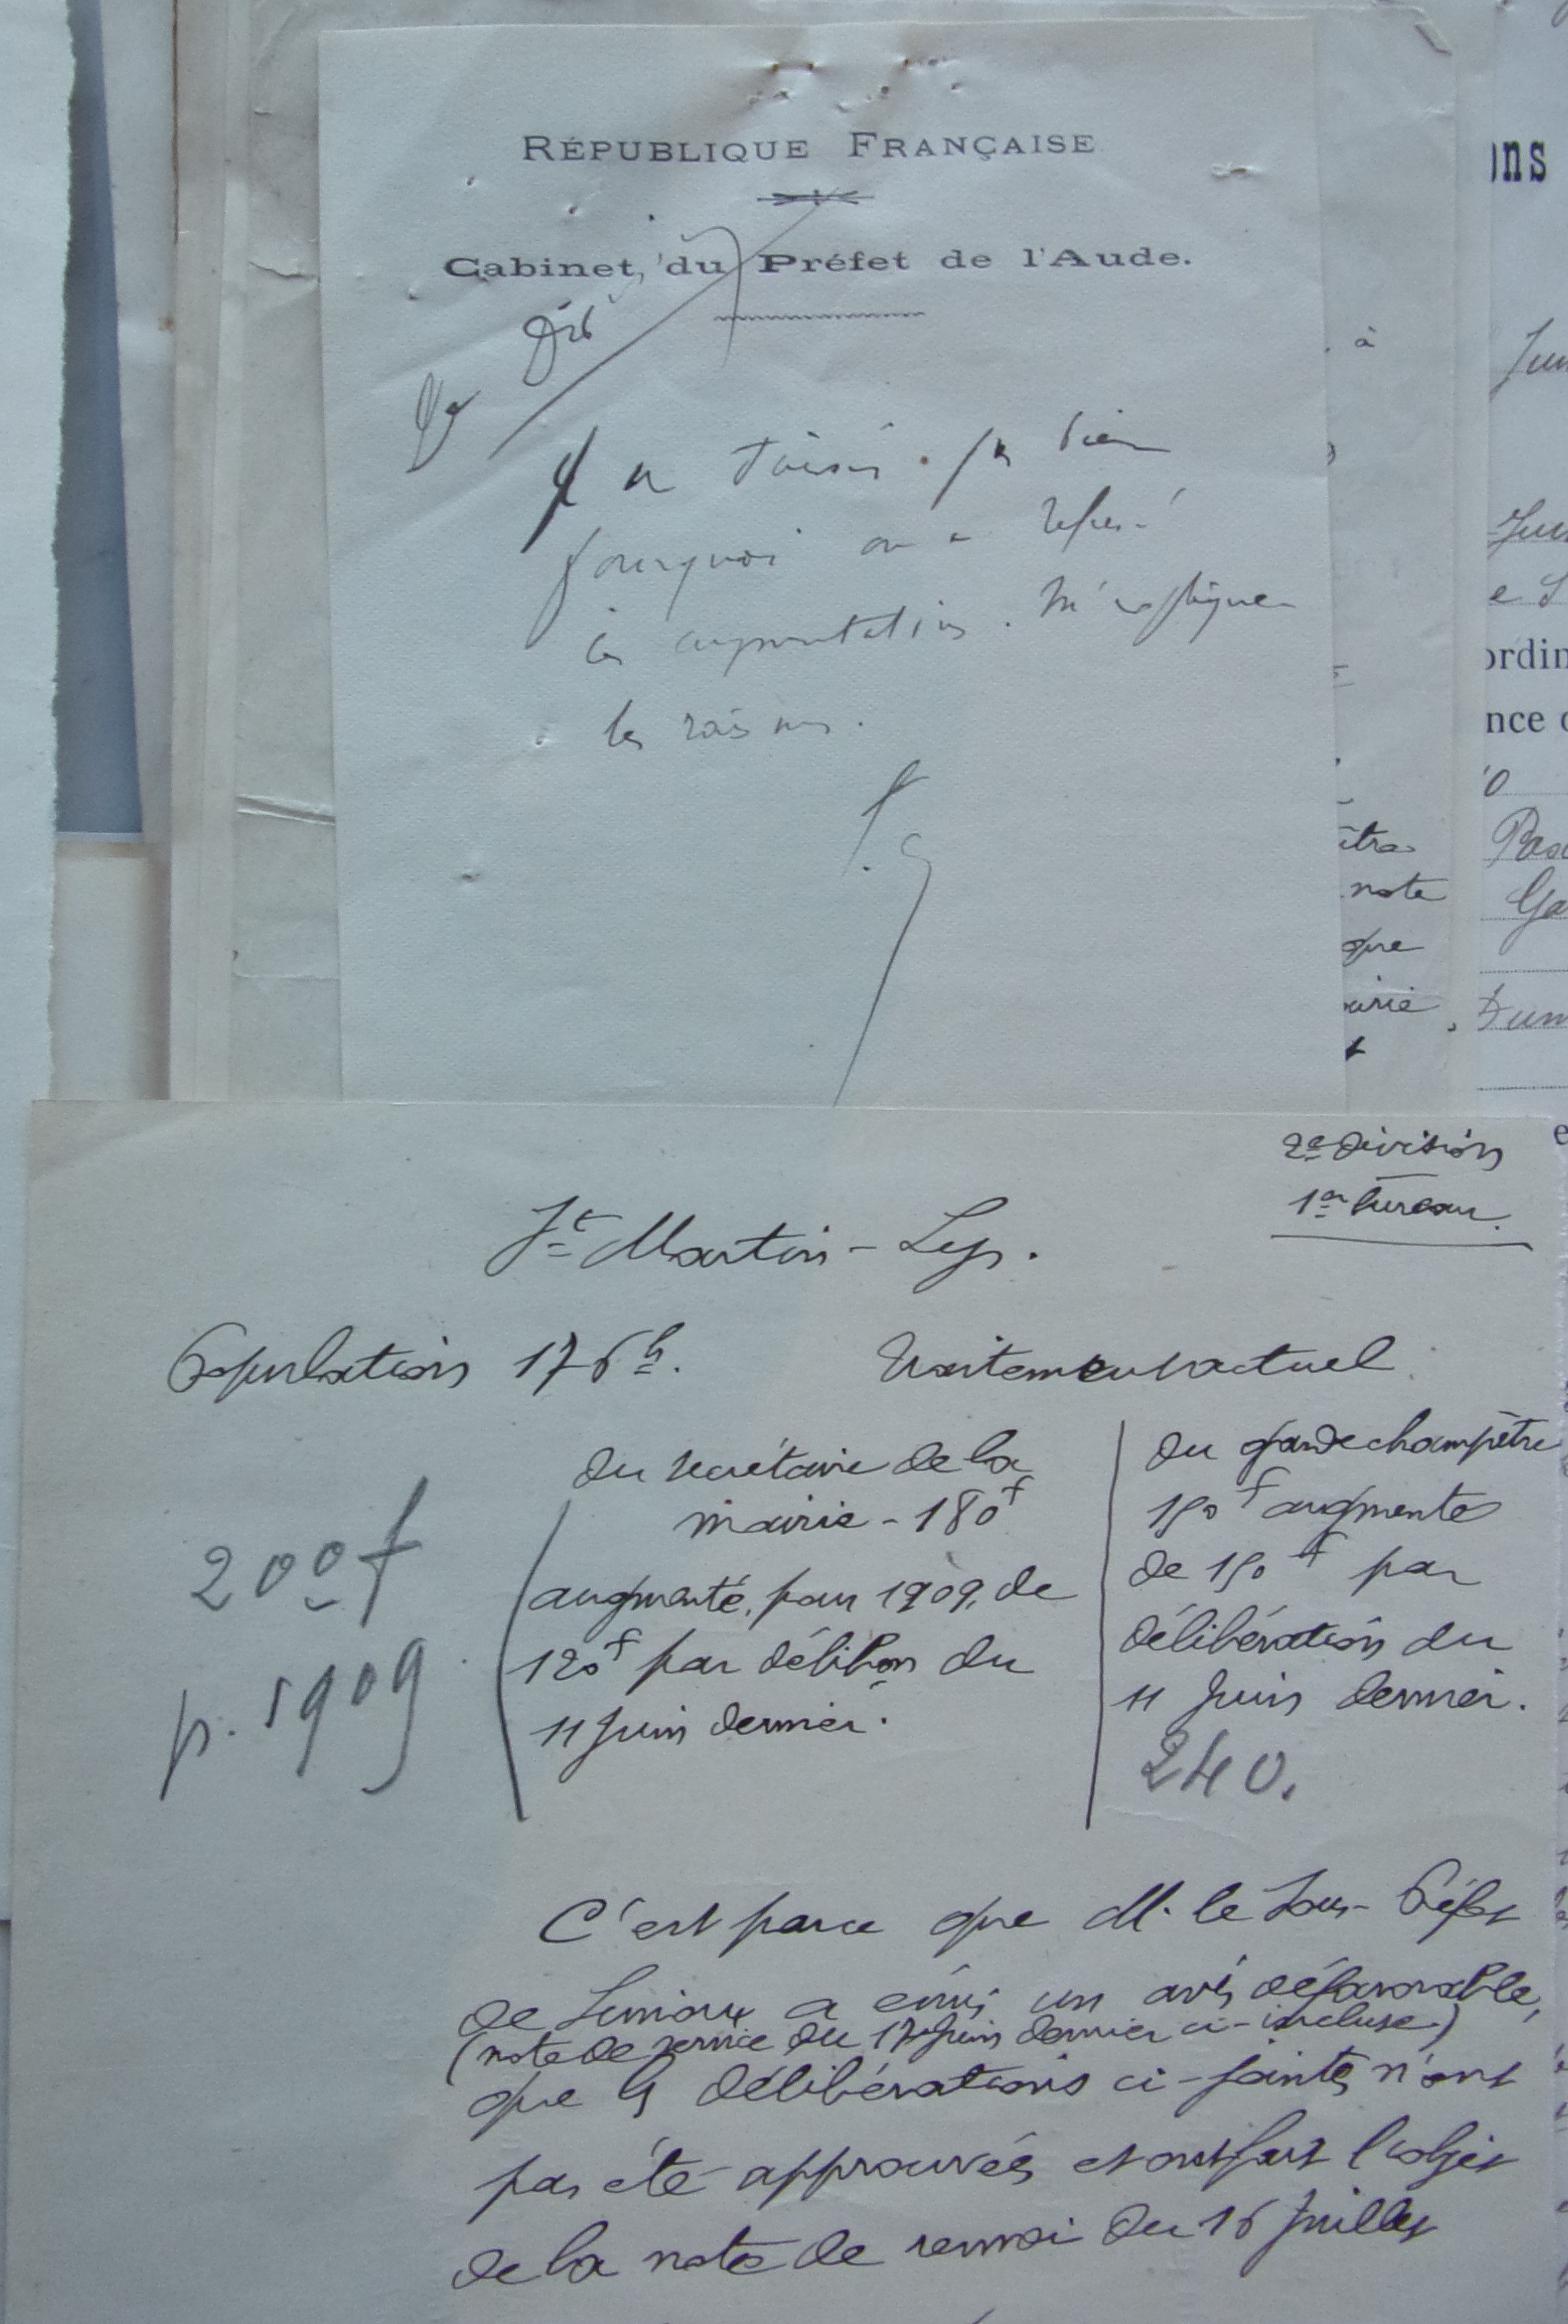 RÉPUBLIQUE FRANÇAISE
Cabinet du Préfet de l'Aude.
bien
pourquoi on a refusé
ces augmentations. M'expliquer
les raisons.
2e Division
1er bureau.
St Martin-Lys.
Population 176 h.
Traitement actuel
du secrétaire de la
mairie - 180f
augmenté, pour 1909, de
120f par délibon du
11 Juin dernier.
200f
p. 1909
du garde champêtre
150f augmenté
de 150f par
délibération du
11 Juin dernier.
240.
C'est parce que M. le Sous-Préfet
de Limoux a émis un avis défavorable,
(note de service du 17 Juin dernier ci-incluse)
que les délibérations ci-jointes n'ont
pas été approuvées et ont fait l'objet
de la note de renvoi du 16 Juillet
ons
à
Juin
Juin
ordin
nce
note
que
airie